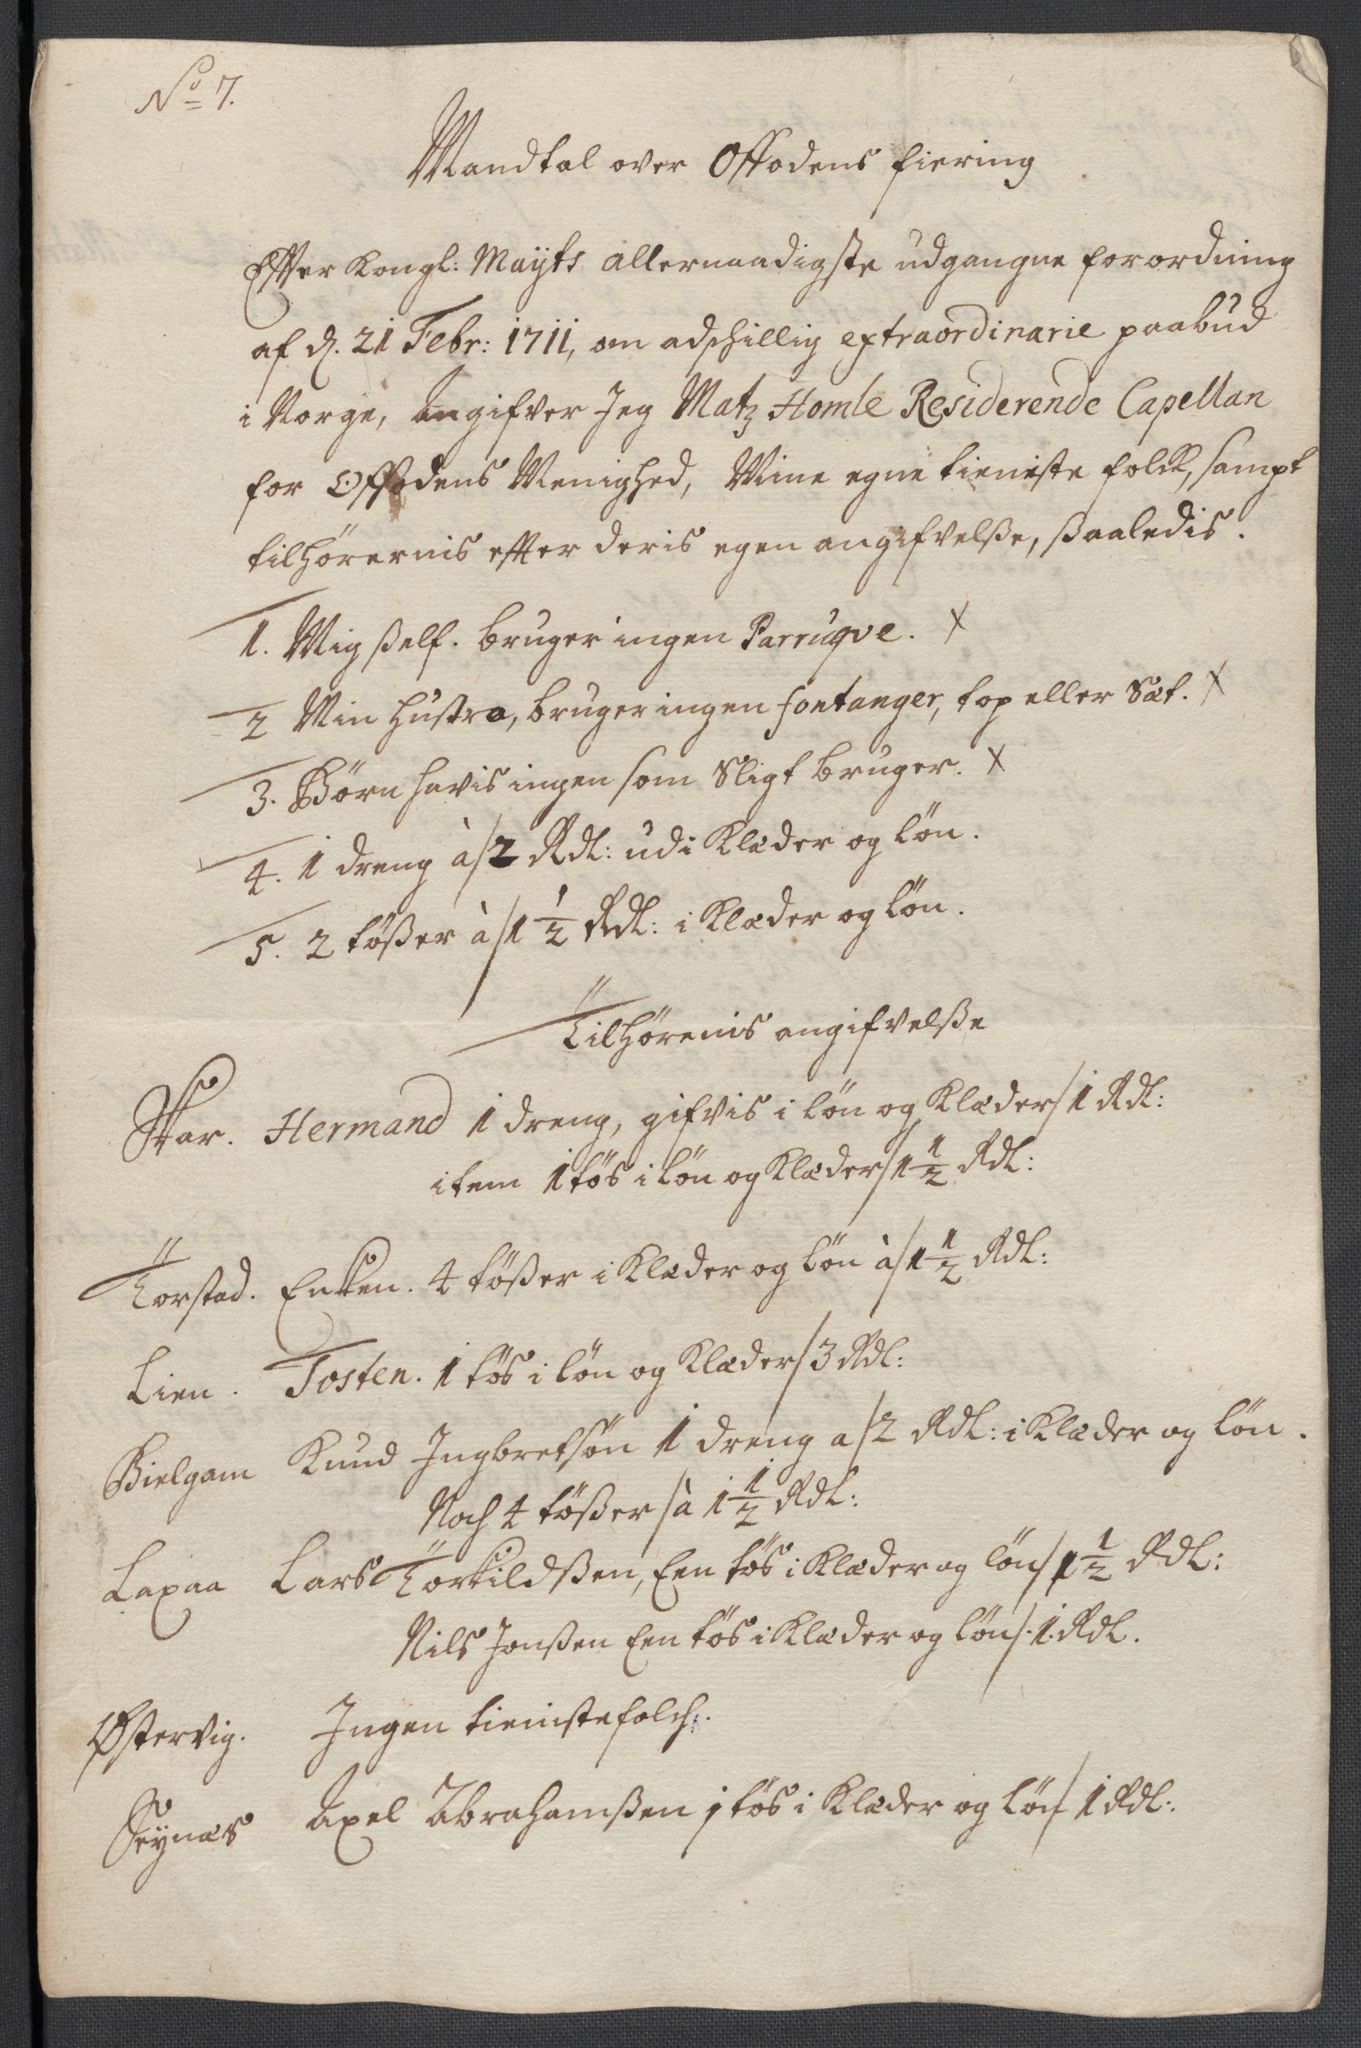 No 7.
Mandtal over Offodens fiering
Efter Kongl: Mayts allernaadigste udgangne forordning
af d. 21 Febr: 1711, om adschillig extraordinarie paabud
i Norge, Angifver Jeg Matz Homle Residerende Capellan
for Offodens Menighed, Mine egne tieniste folck, sampt
tilhørernis efter deris egen angifvelße, ßaaledis.
1. Mig ßelf. bruger ingen Parruqve. X
2 Min hustro, bruger ingen fontanger, top eller Sæt. X
3. Børn havis ingen som Sligt bruger. X
4. 1 dreng à /2 Rdl: udi Klæder og løn.
5. 2 tößer à /1 1/2 Rdl: i Klæder og løn.
Tilhørernis angifvelße
Skar. Hermand 1 dreng, gifvis i løn og Klæder /1 Rdl:
item 1 tös i løn og Klæder /1 1/2 Rdl:
Torstad. Enken. 4 tößer i Klæder og løn à /1 1/2 Rdl:
Lien. Tosten. 1 tös i løn og Klæder /3 Rdl:
Bielgam Knud Ingbretsøn 1 dreng a /2 Rdl: i Klæder og løn.
Noch 4 tößer /à 1 1/2 Rdl:
Laxaa Lars Torkildßen, Een tös i Klæder og løn /1 1/2 Rdl:
Nils Jonßen Een tös i Klæder og løn /. 1. Rdl.
Østervig. Ingen tienistefolch.
Seynæs Axel Abrahamßen 1 tös i Klæder og løn / 1 Rdl: